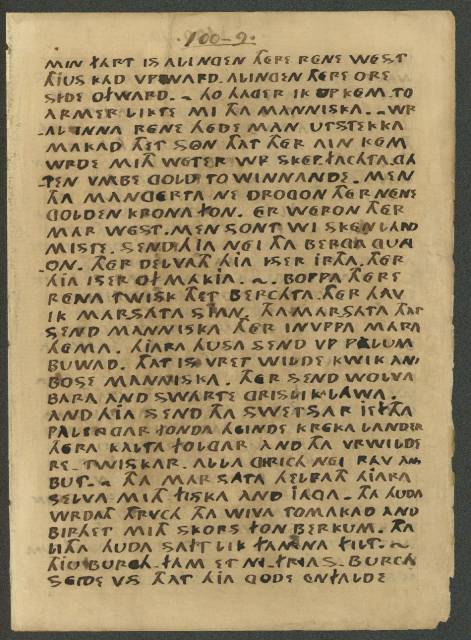 ·100-9·
MIN FART IS ALINGEN THERE RENE WEST
THIUS KAD VPWARD. ALINGEN THERE ORE
SIDE OFWARD. ~ HO HAGER IK UPKEM. TO
ARMER LIKTE MI THA MANNISKA. ~ WR
AL INNA RENE HEDE MAN UTSTEKKA
MAKAD THET SON THAT THER AIN KEM
WRDE MITH WETER WR SKEP.FACHTA. GA
TEN VMBE GOLD TO WINNANDE. MEN
THA MANGERTA NE DROGON THER NENE
GOLDEN KRONA FON. ER WERON THER
MAR WEST. MEN SONT WI SKENLAND
MISTE. SEND HIA NEI THA BERGA GVN
ON. THER DELVATH HIA ISER IRTHA. THER
HIA ISER OF MAKIA. ~. BOPPA THERE
RENA TWISK THET BERCHTA. THER HAV
IK MARSATA SIAN. THA MARSATA THAT
SEND MANNISKA THER INVPPA MARA
HEMA. HIARA HUSA SEND VP PALUM
BUWAD. THAT IS VRET WILDE KWIK AN
BOSE MANNISKA. THER SEND WOLVA
BARA AND SWARTE GRISLIK LAWA.
AND HIA SEND THA SWETSAR IEFTHA
PALENGAR FONDA HEINDE KREKA LANDER
THERA KALTA FOLGAR AND THA VRWILDE
RE. TWISKAR. ALLA GIRICH NEI RAV AN
BUT. ~ THA MARSATA HELPATH HIARA
SELVA MITH FISKA AND IAGA. THA HUDA
WRDAT THRVCH THA WIVA TOMAKAD AND
BIRHET MITH SKORS FON BERKUM. THA
LITHA HUDA SAFT LIK FAMNA FILT. ~
THIU BURCH. FAM ET FRIAS. BURCH
SEIDE VS THAT HIA GODE ENFALDE